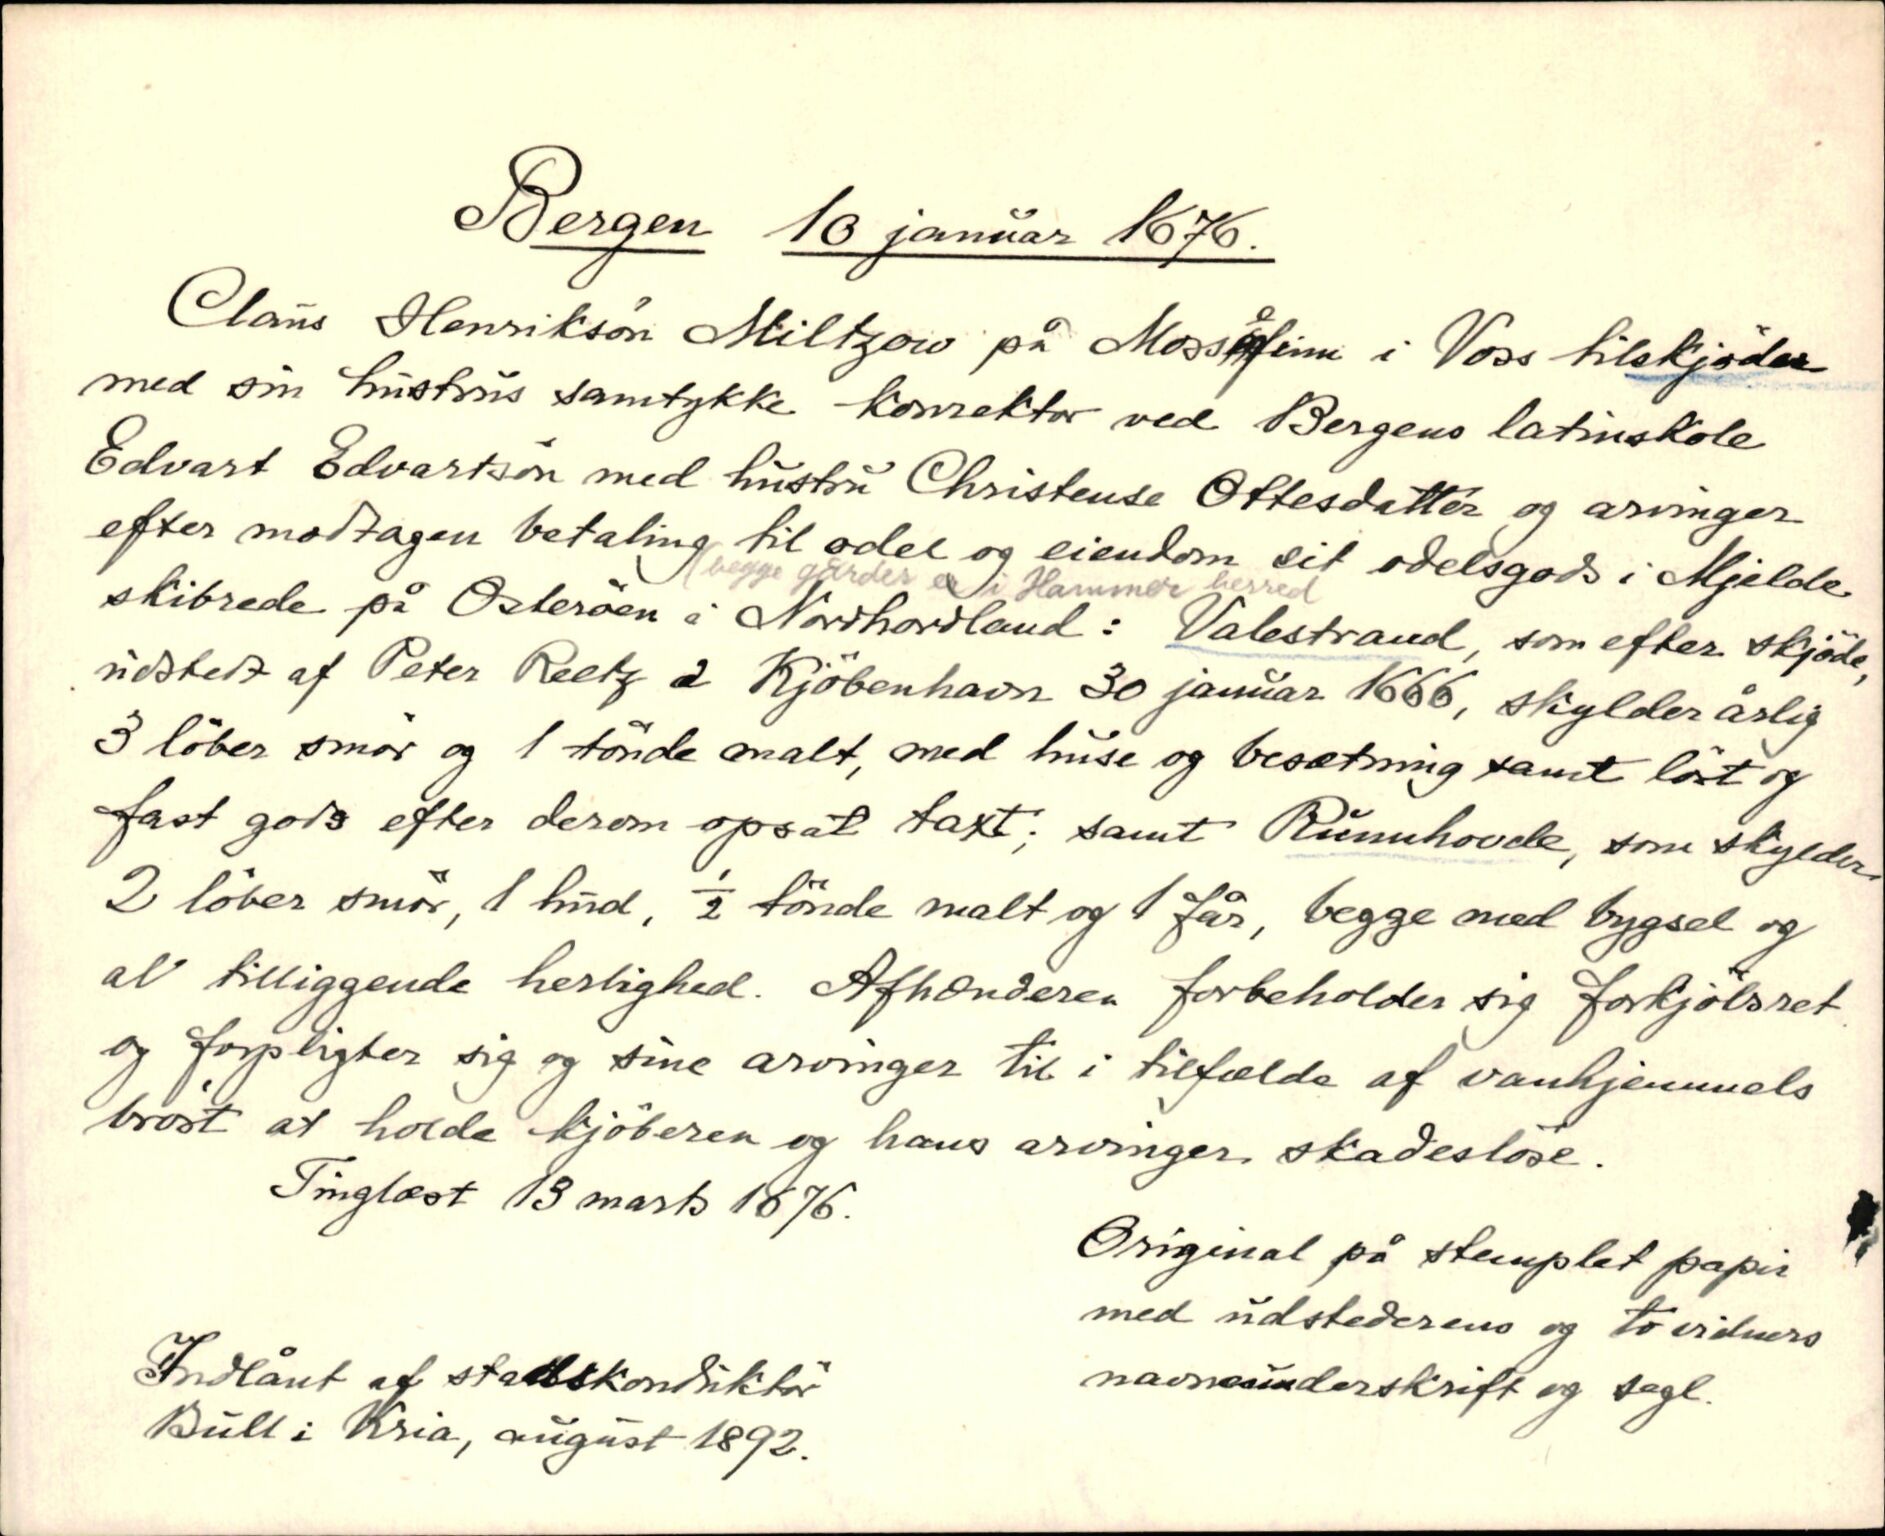 Bergen 10 januar 1676.
Claus Henriksön Miltzow på Mossåfinn i Voss tilskjöder
med sin hustrus samtykke konrektor ved Bergens latinskole
Edvart Edvartsön med hustru Christense Ottesdatter og arvinger
efter modtagen betaling til odel og eiendom sit odelsgods i Mjelde
(begge gårder er i Hammer herred
skibrede på Osteröen i Nordhordland: Valestrand, som efter skjöde,
udstedt af Peter Reetz i Kjöbenhavn 30 januar 1666, skylder årlig
3 löber smör og 1 tönde malt, med huse og besætning samt löst og
fast gods efter derom opsat taxt; samt Runnhovde, som skylder
2 löber smör, 1 hud, ½ tönde malt og 1 får, begge med bygsel og
al tilliggende herlighed. Afhænderen forbeholder sig forkjöbsret
og forpligter sig og sine arvinger til i tilfælde af vanhjemmels
bröst at holde kjöberen og hans arvinger skadeslöse.
Tinglæst 13 marts 1676.
Original på stemplet papir
med udstederens og to vidners
navneunderskrift og segl.
Indlånt af stadskonduktör
Bull i Kria, august 1892.